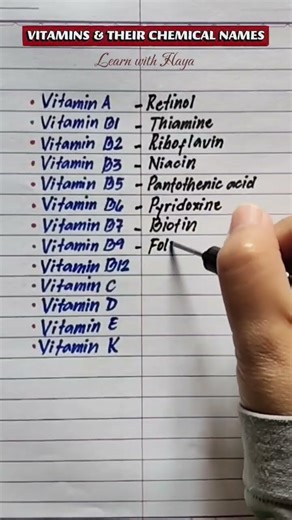 VITAMINS & THEIR CHEMICAL NAMES
Learn with Haya
• Vitamin A - Retinol
• Vitamin B1 - Thiamine
• Vitamin B2 - Riboflavin
• Vitamin B3 - Niacin
• Vitamin B5 - Pantothenic acid
• Vitamin B6 - Pyridoxine
• Vitamin B7 - Biotin
• Vitamin B9 - Fol
• Vitamin B12
• Vitamin C
• Vitamin D
• Vitamin E
• Vitamin K